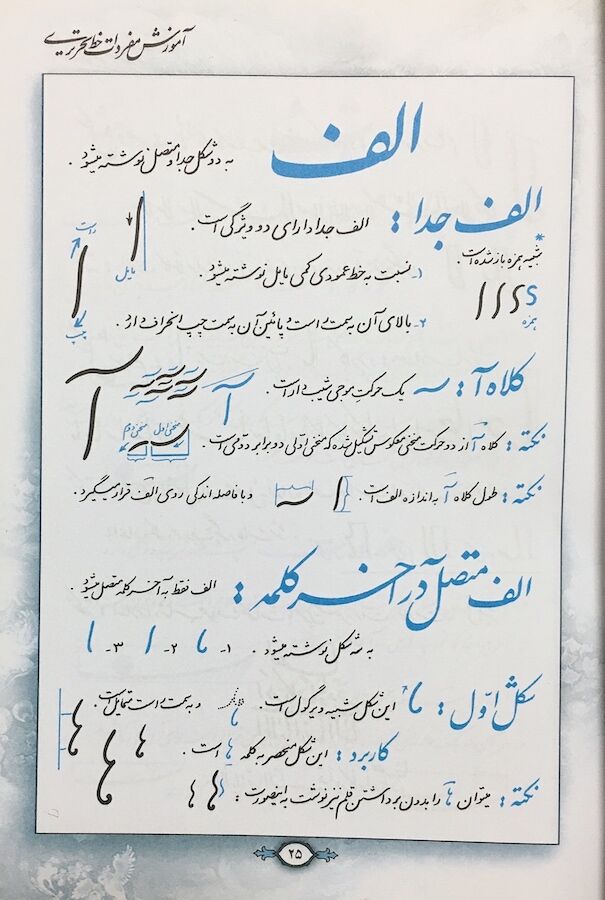 آموزش مفردات خط تحریری
الف
به دو شکل جدا و متصل نوشته میشود .
الف جدا : الف جدا دارای دو ویژگی است .
* شبیه همزه باز شده است .
همزه
۱- نسبت به خط عمودی کمی مایل نوشته میشود .
مایل
راست
چپ
۲- بالای آن به سمت راست و پائین آن به سمت چپ انحراف دارد .
کلاه آ : یک حرکت موجی شیب دار است .
نکته : کلاه آ از دو حرکت منحنی معکوس تشکیل شده که منحنی اولی دو برابر دومی است .
منحنی اول منحنی دوم
نکته : طول کلاه آ به اندازه الف است . و با فاصله اندکی روی الف قرار میگیرد .
الف متصل در آخر کلمه : الف فقط به آخر کلمه متصل میشود .
به سه شکل نوشته میشود . ۱- ا ۲- ا ۳- ا
شکل اوّل : ا این شکل شبیه ویرگول است . و به سمت راست متمایل است .
کاربرد : این شکل منحصر به کلمه ها است .
نکته : میتوان ها را بدون برداشتن قلم نیز نوشت به اینصورت : ها ها
۲۵